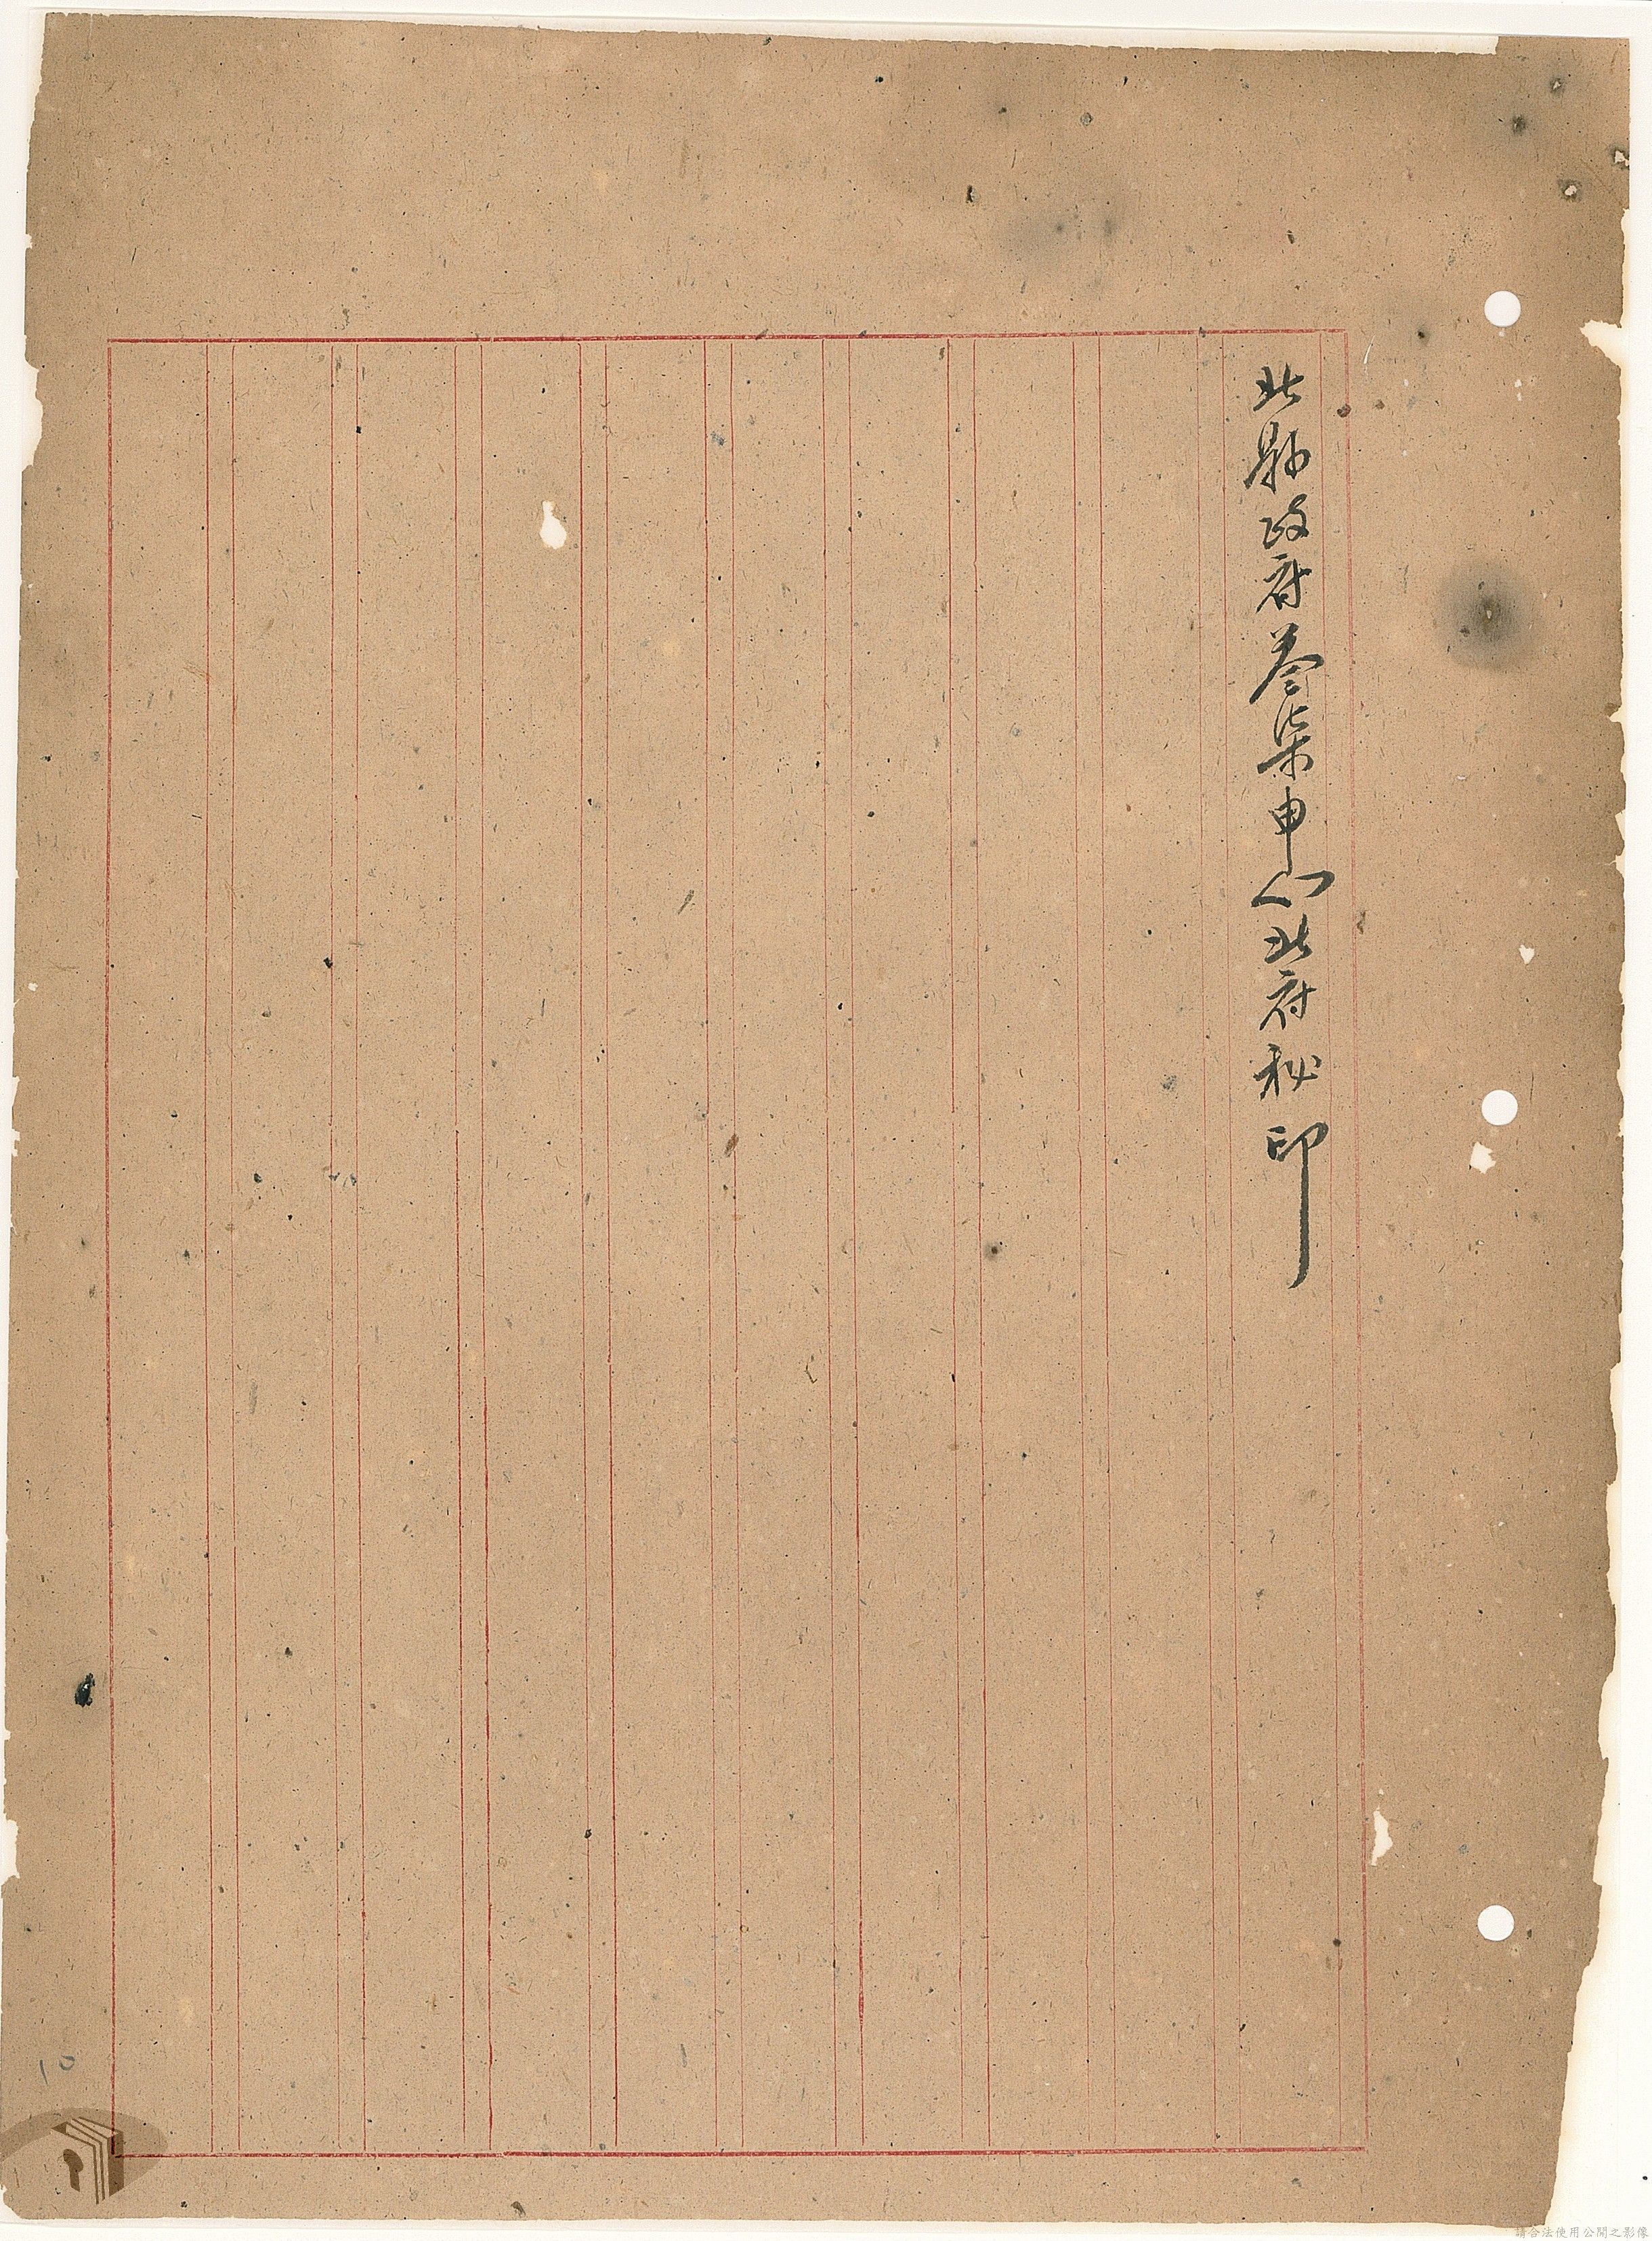 北縣政府叁柒申北府秘印
10
請合法使用公開之影像